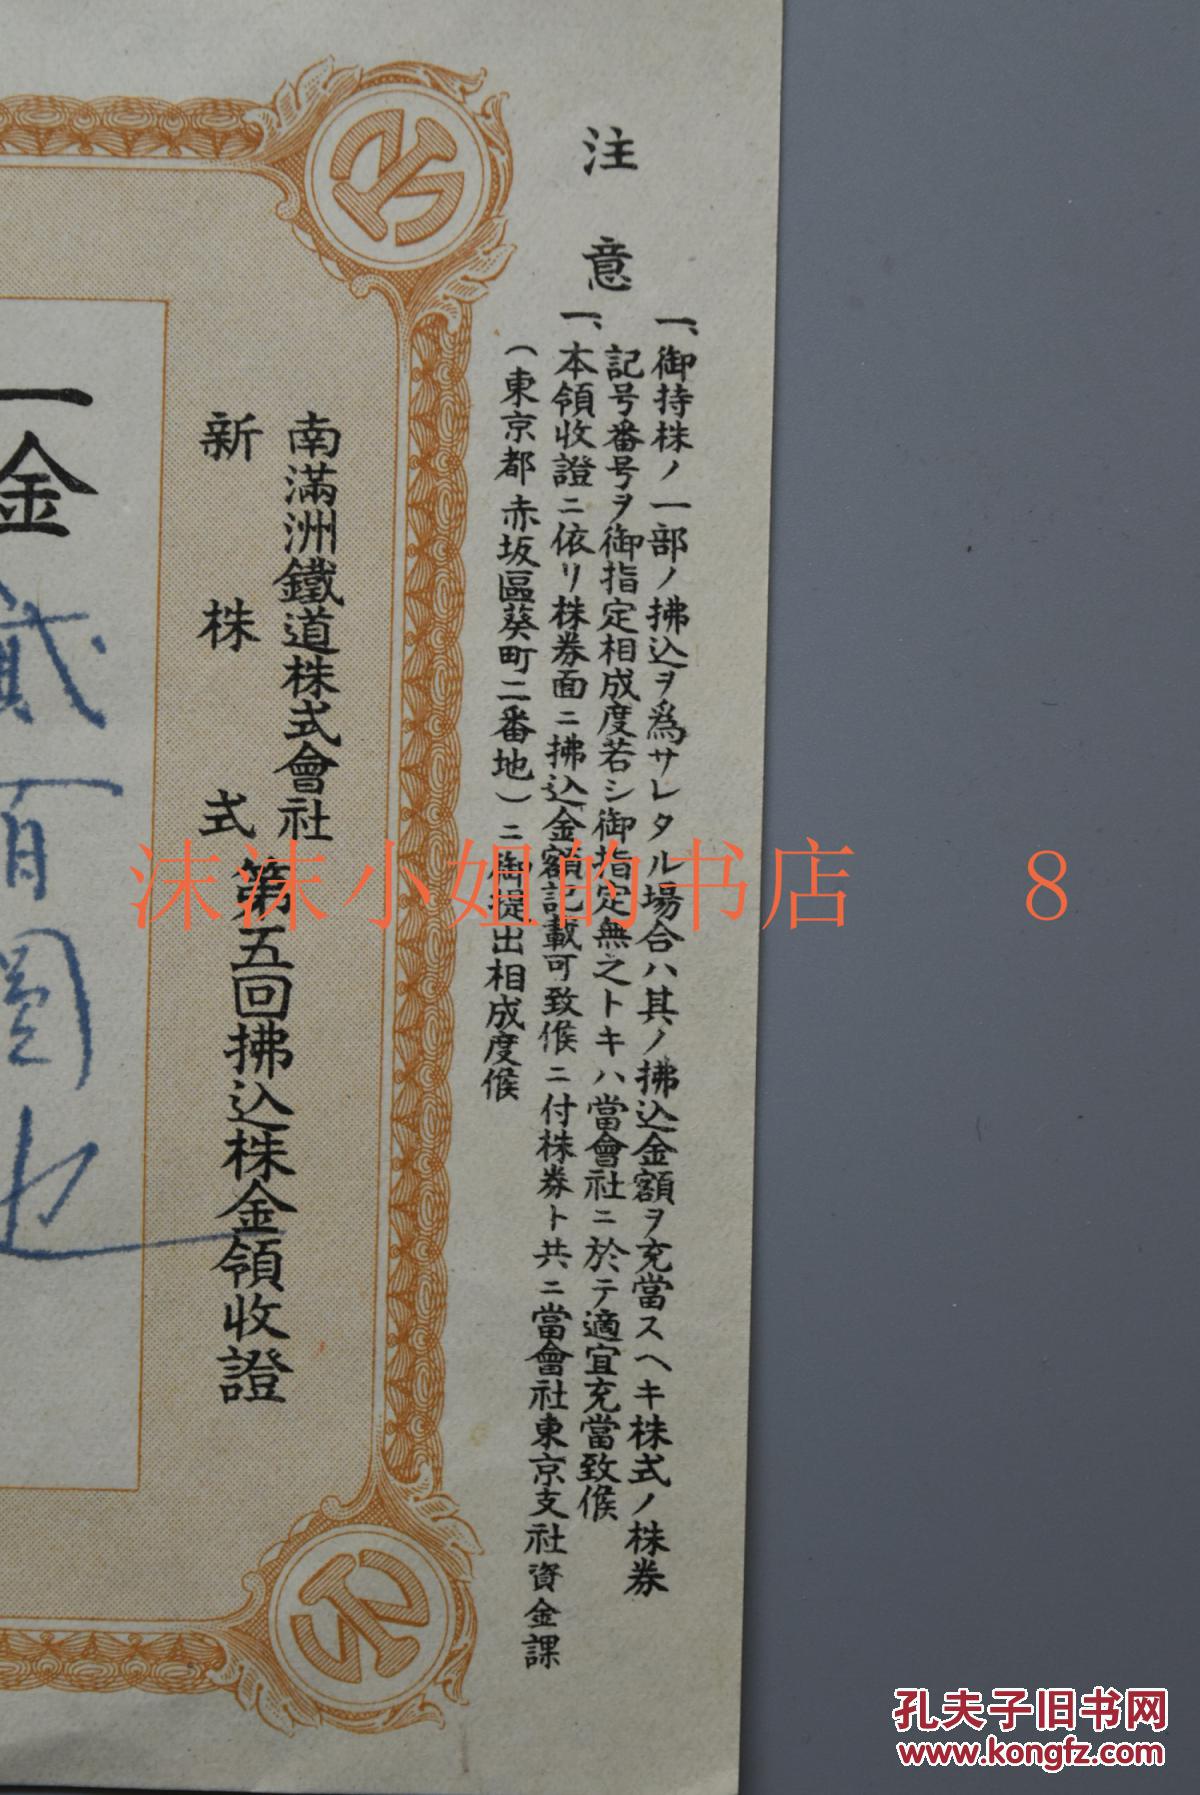 注意
一、御持株ノ一部ノ拂込ヲ爲サレタル場合ハ其ノ拂込金額ヲ充當スヘキ株式ノ株券
記号番号ヲ御指定相成度若シ御指定無之トキハ當會社ニ於テ適宜充當致候
一、本領收證ニ依リ株券面ニ拂込金額記載可致候ニ付株券ト共ニ當會社東京支社資金課
（東京都赤坂區葵町二番地）ニ御提出相成度候
南滿洲鐵道株式會社
新株式
第五回拂込株金領收證
一金貳百圓也
沫沫小姐的书店 8
孔夫子旧书网
www.kongfz.com